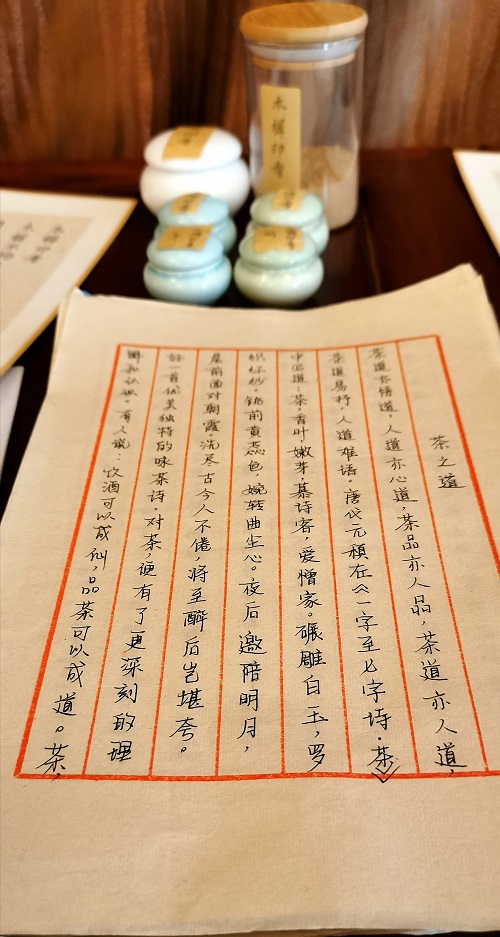 茶之道
茶道亦悟道，人道亦心道，茶品亦人品，茶道亦人道，
茶道易抒，人道难悟。唐代元稹在《一字至七字诗·茶》
中写道：茶，香叶，嫩芽，慕诗客，爱憎家。碾雕白玉，罗
织红纱。铫前黄蕊色，婉转曲尘心。夜后邀陪明月，
晨前面对朝霞。洗尽古今人不倦，将至醉后岂堪夸。
好一首优美独特的咏茶诗。对茶，便有了更深刻的理
解和认识。有人说：饮酒可以成仙，品茶可以成道。茶，
木樨印香